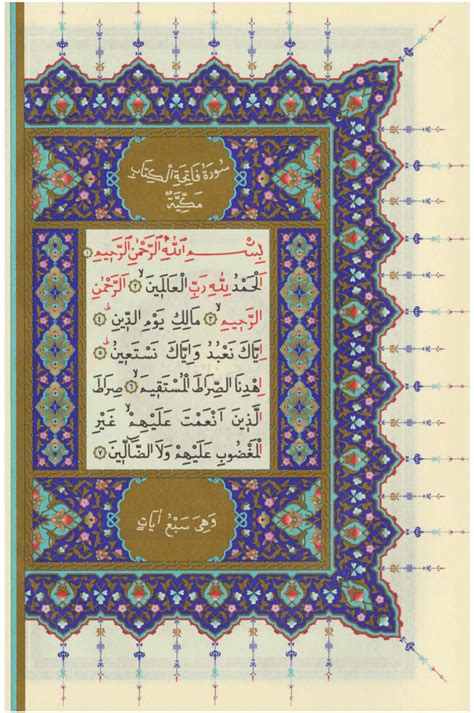 سُورَةُ فَاتِحَةِ الْكِتَابِ
مَكِّيَّةٌ
بِسْمِ اللّٰهِ الرَّحْمٰنِ الرَّحِيمِ ١
اَلْحَمْدُ لِلّٰهِ رَبِّ الْعَالَمِينَۙ ٢ اَلرَّحْمٰنِ
الرَّحِيمِۙ ٣ مَالِكِ يَوْمِ الدِّينِۜ ٤
اِيَّاكَ نَعْبُدُ وَاِيَّاكَ نَسْتَعِينُۜ ٥
اِهْدِنَا الصِّرَاطَ الْمُسْتَقِيمَۙ ٦ صِرَاطَ
الَّذِينَ اَنْعَمْتَ عَلَيْهِمْۙ غَيْرِ
الْمَغْضُوبِ عَلَيْهِمْ وَلَا الضَّٓالِّينَ ٧
وَهِىَ سَبْعُ اٰيَاتٍ